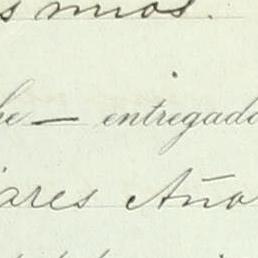 s mios.
he — entregado
ares Año